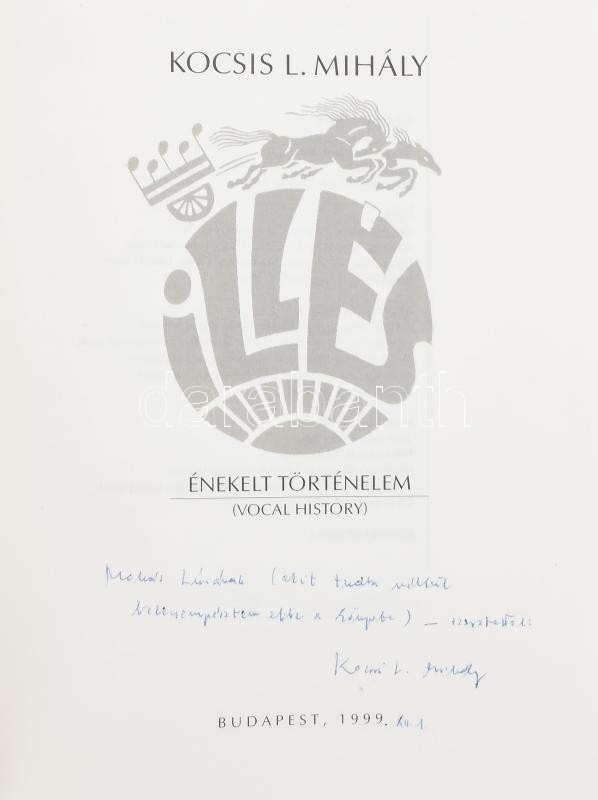 KOCSIS L. MIHÁLY
ILLÉS
darabanth
ÉNEKELT TÖRTÉNELEM
(VOCAL HISTORY)
(akit tudta nélkül
belecsempésztem ebbe a könyvbe) – szeretettel:
Kocsis L. Mihály
BUDAPEST, 1999.